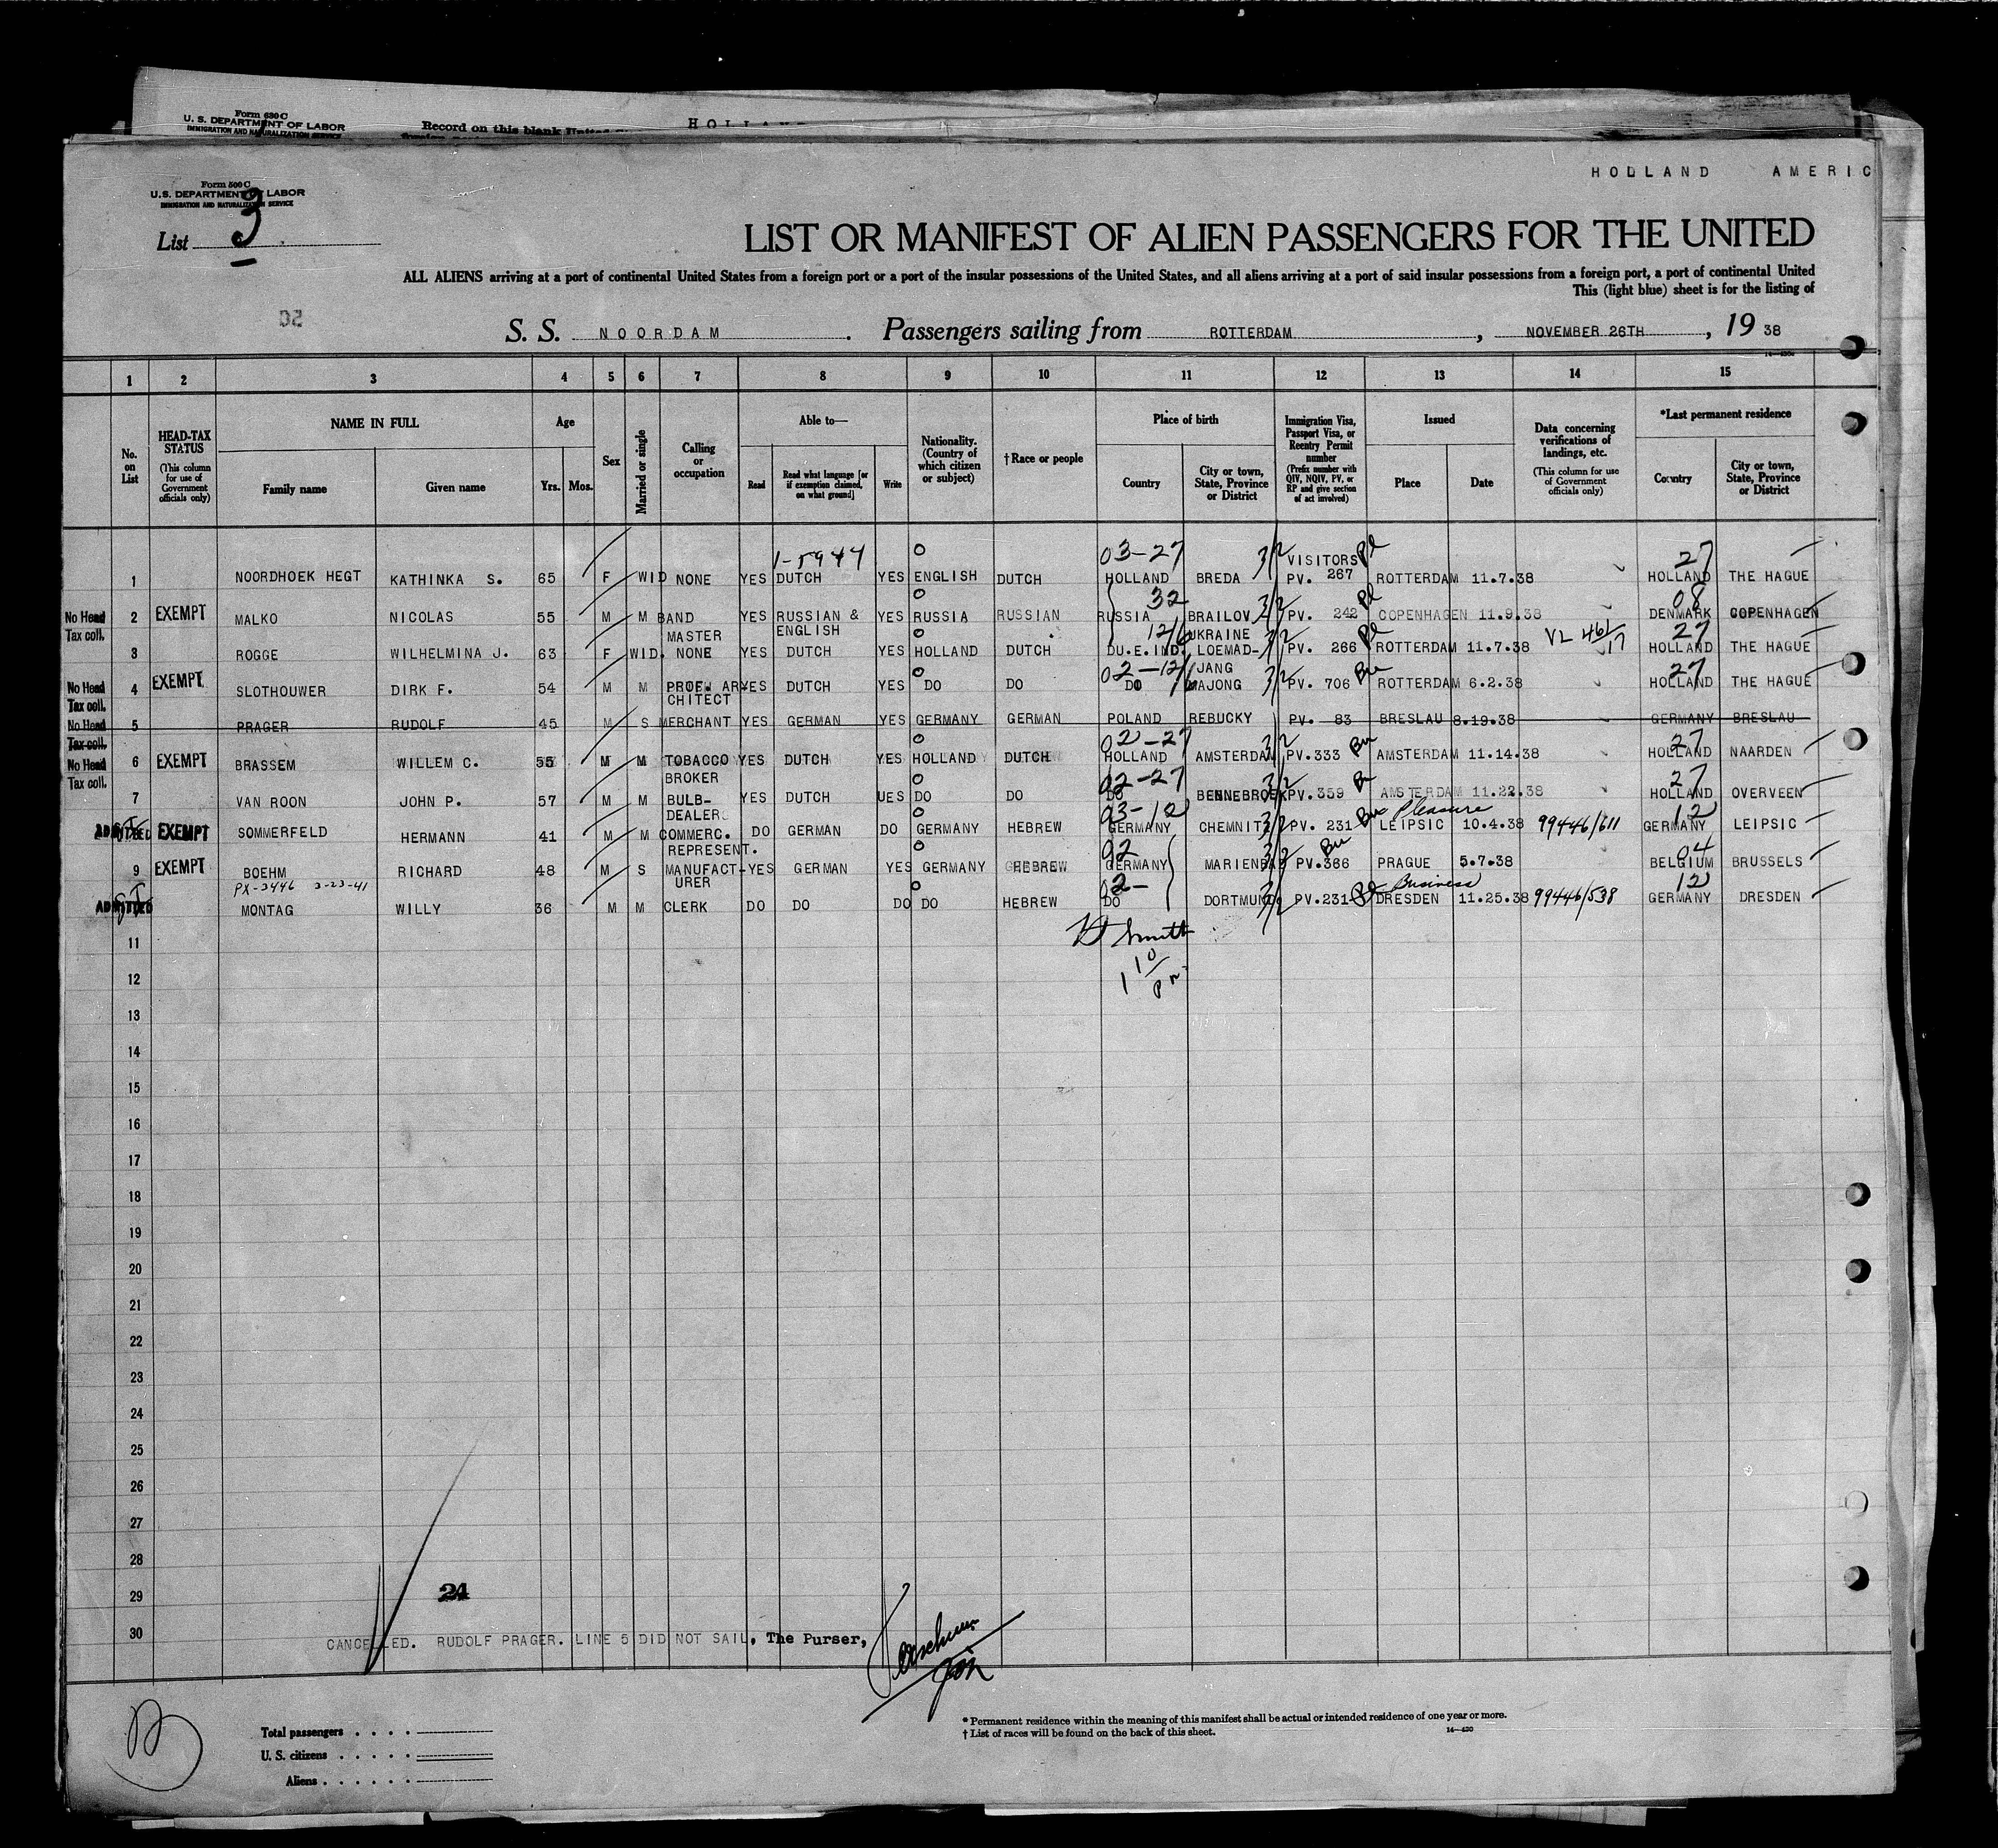 Form 630 C
U. S. DEPARTMENT OF LABOR
IMMIGRATION AND NATURALIZATION SERVICE
Record on this blank United
HOLLAND
Form 500 C
U. S. DEPARTMENT OF LABOR
IMMIGRATION AND NATURALIZATION SERVICE
HOLLAND AMERIC
List 3
LIST OR MANIFEST OF ALIEN PASSENGERS FOR THE UNITED
ALL ALIENS arriving at a port of continental United States from a foreign port or a port of the insular possessions of the United States, and all aliens arriving at a port of said insular possessions from a foreign port, a port of continental United
This (light blue) sheet is for the listing of
S. S. NOORDAM. Passengers sailing from ROTTERDAM, NOVEMBER 26TH, 19 38
1 2 3 4 5 6 7 8 9 10 11 12 13 14 15
No. on List
HEAD-TAX STATUS (This column for use of Government officials only)
NAME IN FULL
Family name Given name
Age
Yrs. Mos.
Sex
Married or single
Calling or occupation
Able to—
Read Read what language [or if exemption claimed, on what ground] Write
Nationality. (Country of which citizen or subject)
† Race or people
Place of birth
Country City or town, State, Province or District
Immigration Visa, Passport Visa, or Reentry Permit number (Prefix number with QIV, NQIV, PV, or RP and give section of act involved)
Issued
Place Date
Data concerning verifications of landings, etc. (This column for use of Government officials only)
*Last permanent residence
Country City or town, State, Province or District
1-5944 03-27 3/2 VISITORS Pl 27
1 NOORDHOEK HEGT KATHINKA S. 65 F WID NONE YES DUTCH YES ENGLISH DUTCH HOLLAND BREDA PV. 267 ROTTERDAM 11.7.38 HOLLAND THE HAGUE
32 3/2 Pl 08
No Head Tax coll. 2 EXEMPT MALKO NICOLAS 55 M M BAND MASTER YES RUSSIAN & ENGLISH YES RUSSIA RUSSIAN RUSSIA BRAILOV UKRAINE PV. 242 COPENHAGEN 11.9.38 DENMARK COPENHAGEN
3/2 Pl VL 461/17 27
3 ROGGE WILHELMINA J. 63 F WID. NONE YES DUTCH YES HOLLAND DUTCH DU.E.IND. LOEMAD-JANG PV. 266 ROTTERDAM 11.7.38 HOLLAND THE HAGUE
3/2 27
No Head Tax coll. 4 EXEMPT SLOTHOUWER DIRK F. 54 M M PROF. ARCHITECT YES DUTCH YES DO DO DO MAJONG PV. 706 ROTTERDAM 6.2.38 HOLLAND THE HAGUE
No Head Tax coll. 5 PRAGER RUDOLF 45 M S MERCHANT YES GERMAN YES GERMANY GERMAN POLAND REBUCKY PV. 83 BRESLAU 8.19.38 GERMANY BRESLAU
02-27 3/2 27
No Head Tax coll. 6 EXEMPT BRASSEM WILLEM C. 55 M M TOBACCO BROKER YES DUTCH YES HOLLAND DUTCH HOLLAND AMSTERDAM PV.333 AMSTERDAM 11.14.38 HOLLAND NAARDEN
02-27 3/2 27
7 VAN ROON JOHN P. 57 M M BULB-DEALER YES DUTCH UES DO DO DO BENNEBROEK PV.359 AMSTERDAM 11.22.38 HOLLAND OVERVEEN
03-12 3/2 Pleasure 12
ADMITTED EXEMPT SOMMERFELD HERMANN 41 M M COMMERC. REPRESENT. DO GERMAN DO GERMANY HEBREW GERMANY CHEMNITZ PV. 231 LEIPSIC 10.4.38 99446/611 GERMANY LEIPSIC
02 3/2 04
9 EXEMPT BOEHM RICHARD 48 M S MANUFACT-URER YES GERMAN YES GERMANY HEBREW GERMANY MARIENBAD PV.366 PRAGUE 5.7.38 BELGIUM BRUSSELS
PX-3446 2-23-41
02- 3/2 Business 12
ADMITTED MONTAG WILLY 36 M M CLERK DO DO DO DO HEBREW DO DORTMUND PV.231 DRESDEN 11.25.38 99446/538 GERMANY DRESDEN
11
Smith
12
1 10/ Pm
13
14
15
16
17
18
19
20
21
22
23
24
25
26
27
28
29
24
30
CANCELLED. RUDOLF PRAGER. LINE 5 DID NOT SAIL, The Purser,
* Permanent residence within the meaning of this manifest shall be actual or intended residence of one year or more.
† List of races will be found on the back of this sheet.
14—430
Total passengers
U. S. citizens
Aliens